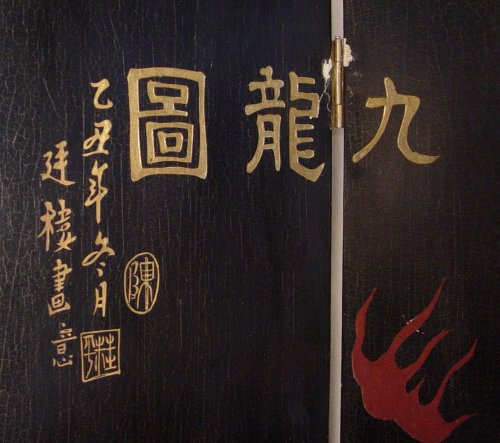 九龍圖
乙丑年冬月
廷樓畫意
陳